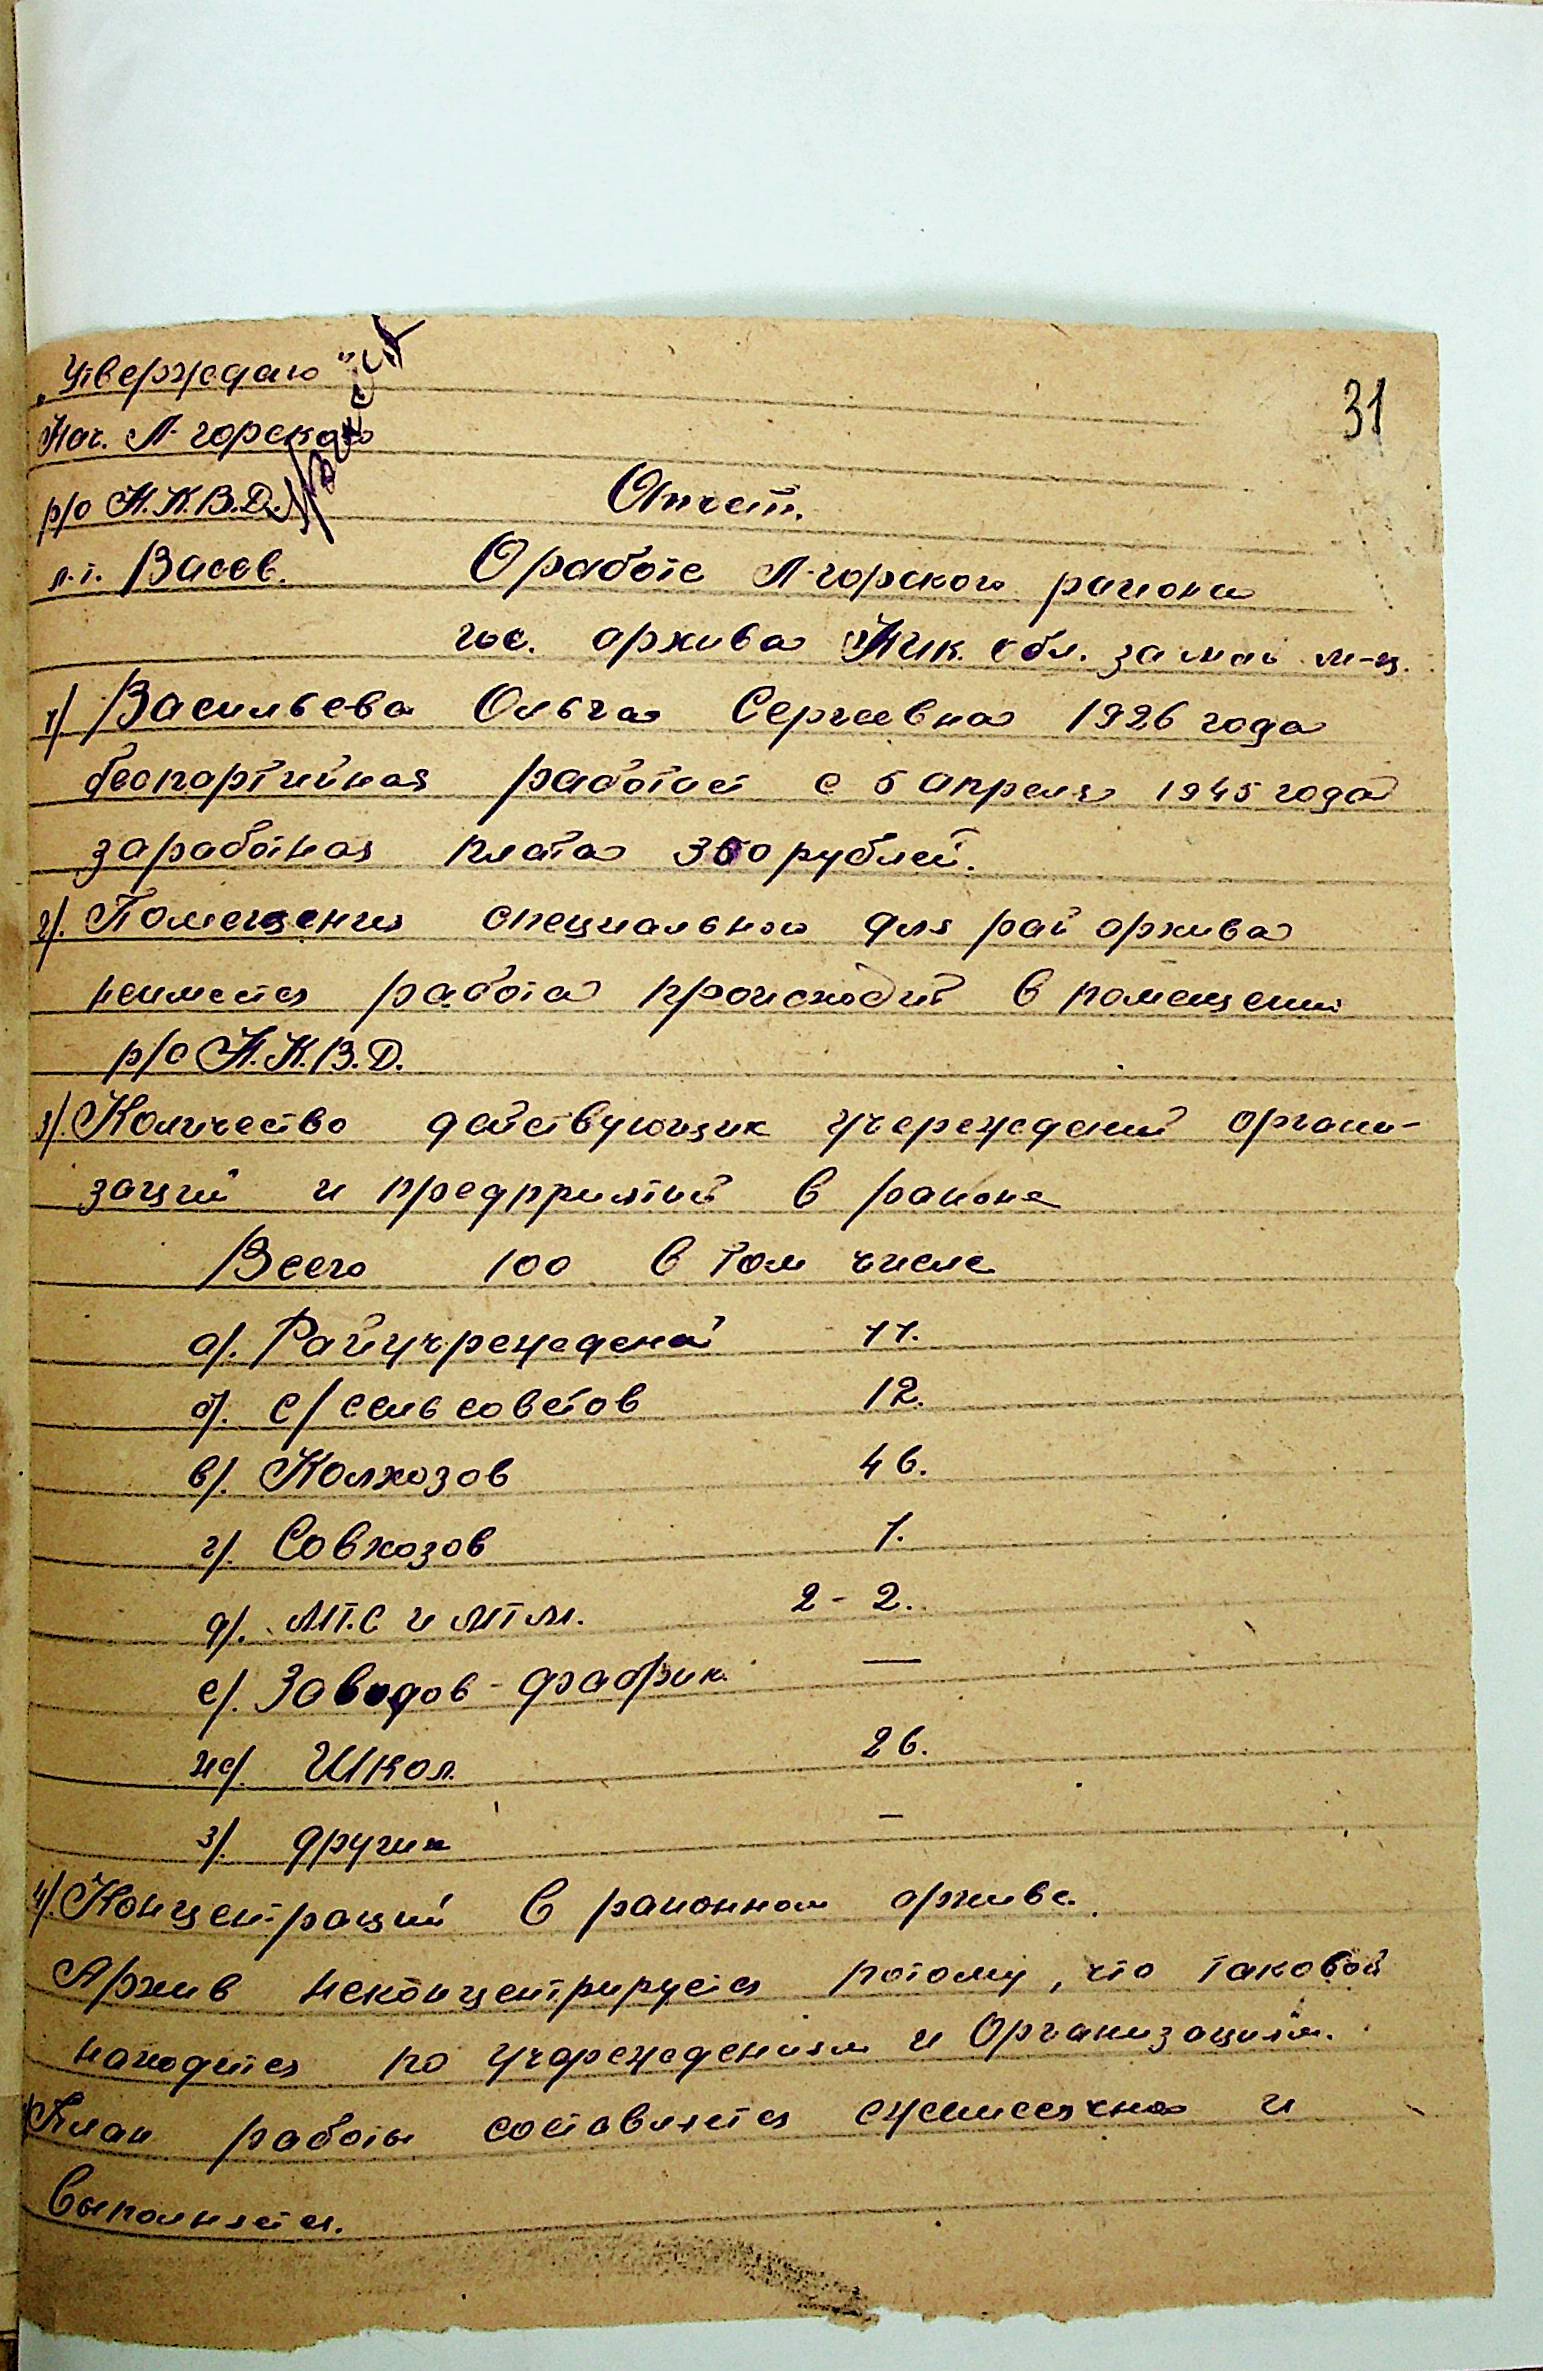 31
„Утверждаю"
Нач. Л-горского
р/о Н.К.В.Д.
л-т. Васев.
Отчет.
О работе Л-горского района
гос. архива Ник. обл. за май м-ц.
1/ Васильева Ольга Сергеевна 1926 года
беспартийная работает с 5 апреля 1945 года
заработная плата 350 рублей.
2/. Помещения специального для рай архива
неимеется работа происходит в помещении
р/о Н.К.В.Д.
3/. Количество действующих учереждений органи-
заций и предприятий в районе
Всего 100 в том числе
а/. Райучреждений 11.
б/. с/сельсоветов 12.
в/. Колхозов 46.
г/. Совхозов 1.
д/. МТ.С и МТМ. 2 - 2.
е/. Заводов - фабрик —
ж/. Школ. 26.
з/. других –
4/. Концентраций в районном архиве.
Архив неконцентрируется потому, что таковой
находится по учереждениям и Организациям.
План работы составляется ежемесячно и
выполняется.